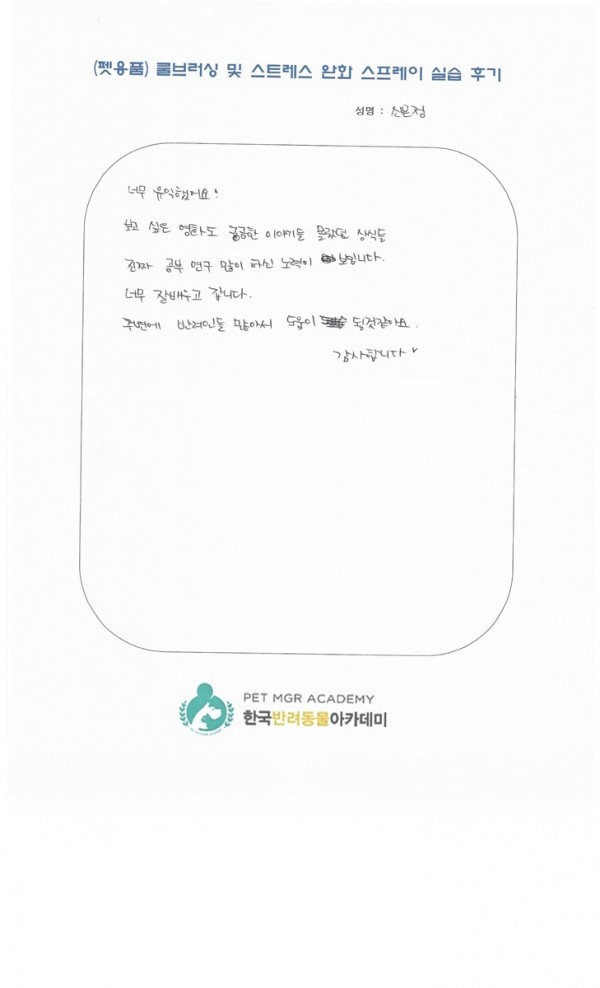 (펫용품) 쿨브러싱 및 스트레스 완화 스프레이 실습 후기
성명 : 신은정
너무 유익했어요!
보고 싶은 영화도 궁금한 이야기들 몰랐던 상식들
진짜 공부 연구 많이 하신 노력이 보입니다.
너무 잘배우고 갑니다.
주변에 반려인들 많아서 도움이 될것같아요.
감사합니다
PET MGR ACADEMY
한국반려동물아카데미